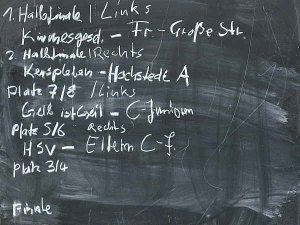 1. Halbfinale | Links
Kirmesgesd. – Fr – Große Str.
2. Halbfinale | Rechts
Kerspleben – Hochstedt A
Platz 7/8 | Links
Geiß ist Geil – C-Junioren
Platz 5/6 Rechts
HSV – Eltern C-J.
Platz 3/4
Finale